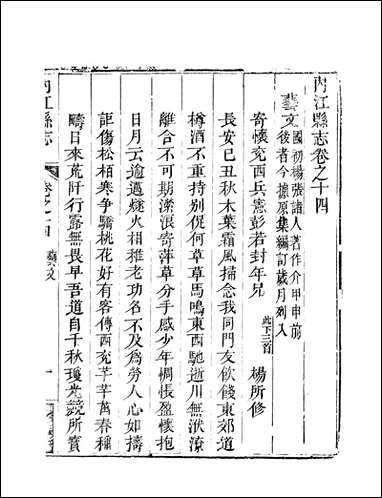 內江縣志卷之十四
藝文國初楊張諸人著作介甲申前
後者今據原集編訂歲月列入
寄懷兗西兵憲彭若封年兄 此下三首 楊所修
長安已丑秋木葉霜風掃念我同門友飲餞東郊道
樽酒不重持别促何草草馬鳴東西馳逝川無洑潦
離合不可期濼浪寄萍草分手感少年惆悵盈懷抱
日月云逾邁燧火相雜老功名不及爲勞人心如擣
詎傷松栢寒爭驕桃花好有客傳西兗芊芊萬春稱
疇日來荒阡行露無畏早吾道自千秋瓊光競所寶
內江縣志
卷之十四 藝文
一